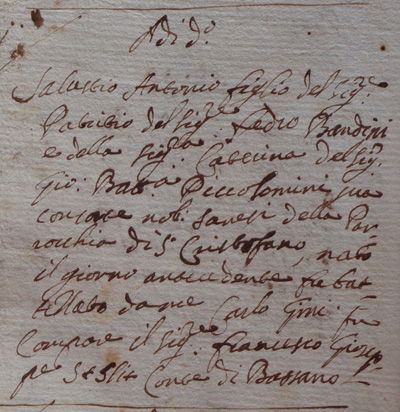 Adi d.o
Salustio Antonio figlio del Sig.re
Patritio del Sig.re Fedro Bandini
e della Sig.ra Caterina del Sig.
Gio: Batt.a Piccolomini sua
consorte nob: Sanesi della Par=
rocchia di S. Cristofano, nato
il giorno antecedente fu bat=
tezzato da me Carlo Gini fu
Compare il Sig.re Francesco Giusep=
pe Conte di Bassano